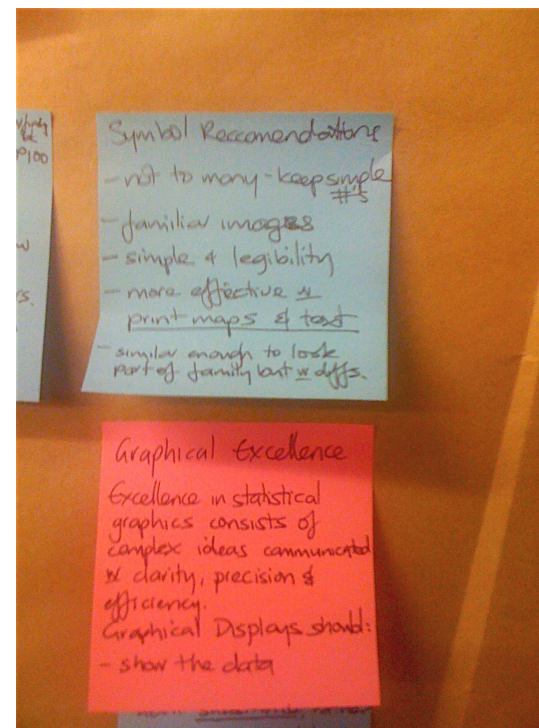 P100
rs.
Symbol Reccomendations
- not to many - keep simple
#'s
- familiar images
- simple & legibility
- more effective w
print maps & text
- similar enough to look
part of family but w diffs.
Graphical Excellence
Excellence in statistical
graphics consists of
complex ideas communicated
w clarity, precision &
efficiency.
Graphical Displays should:
- show the data